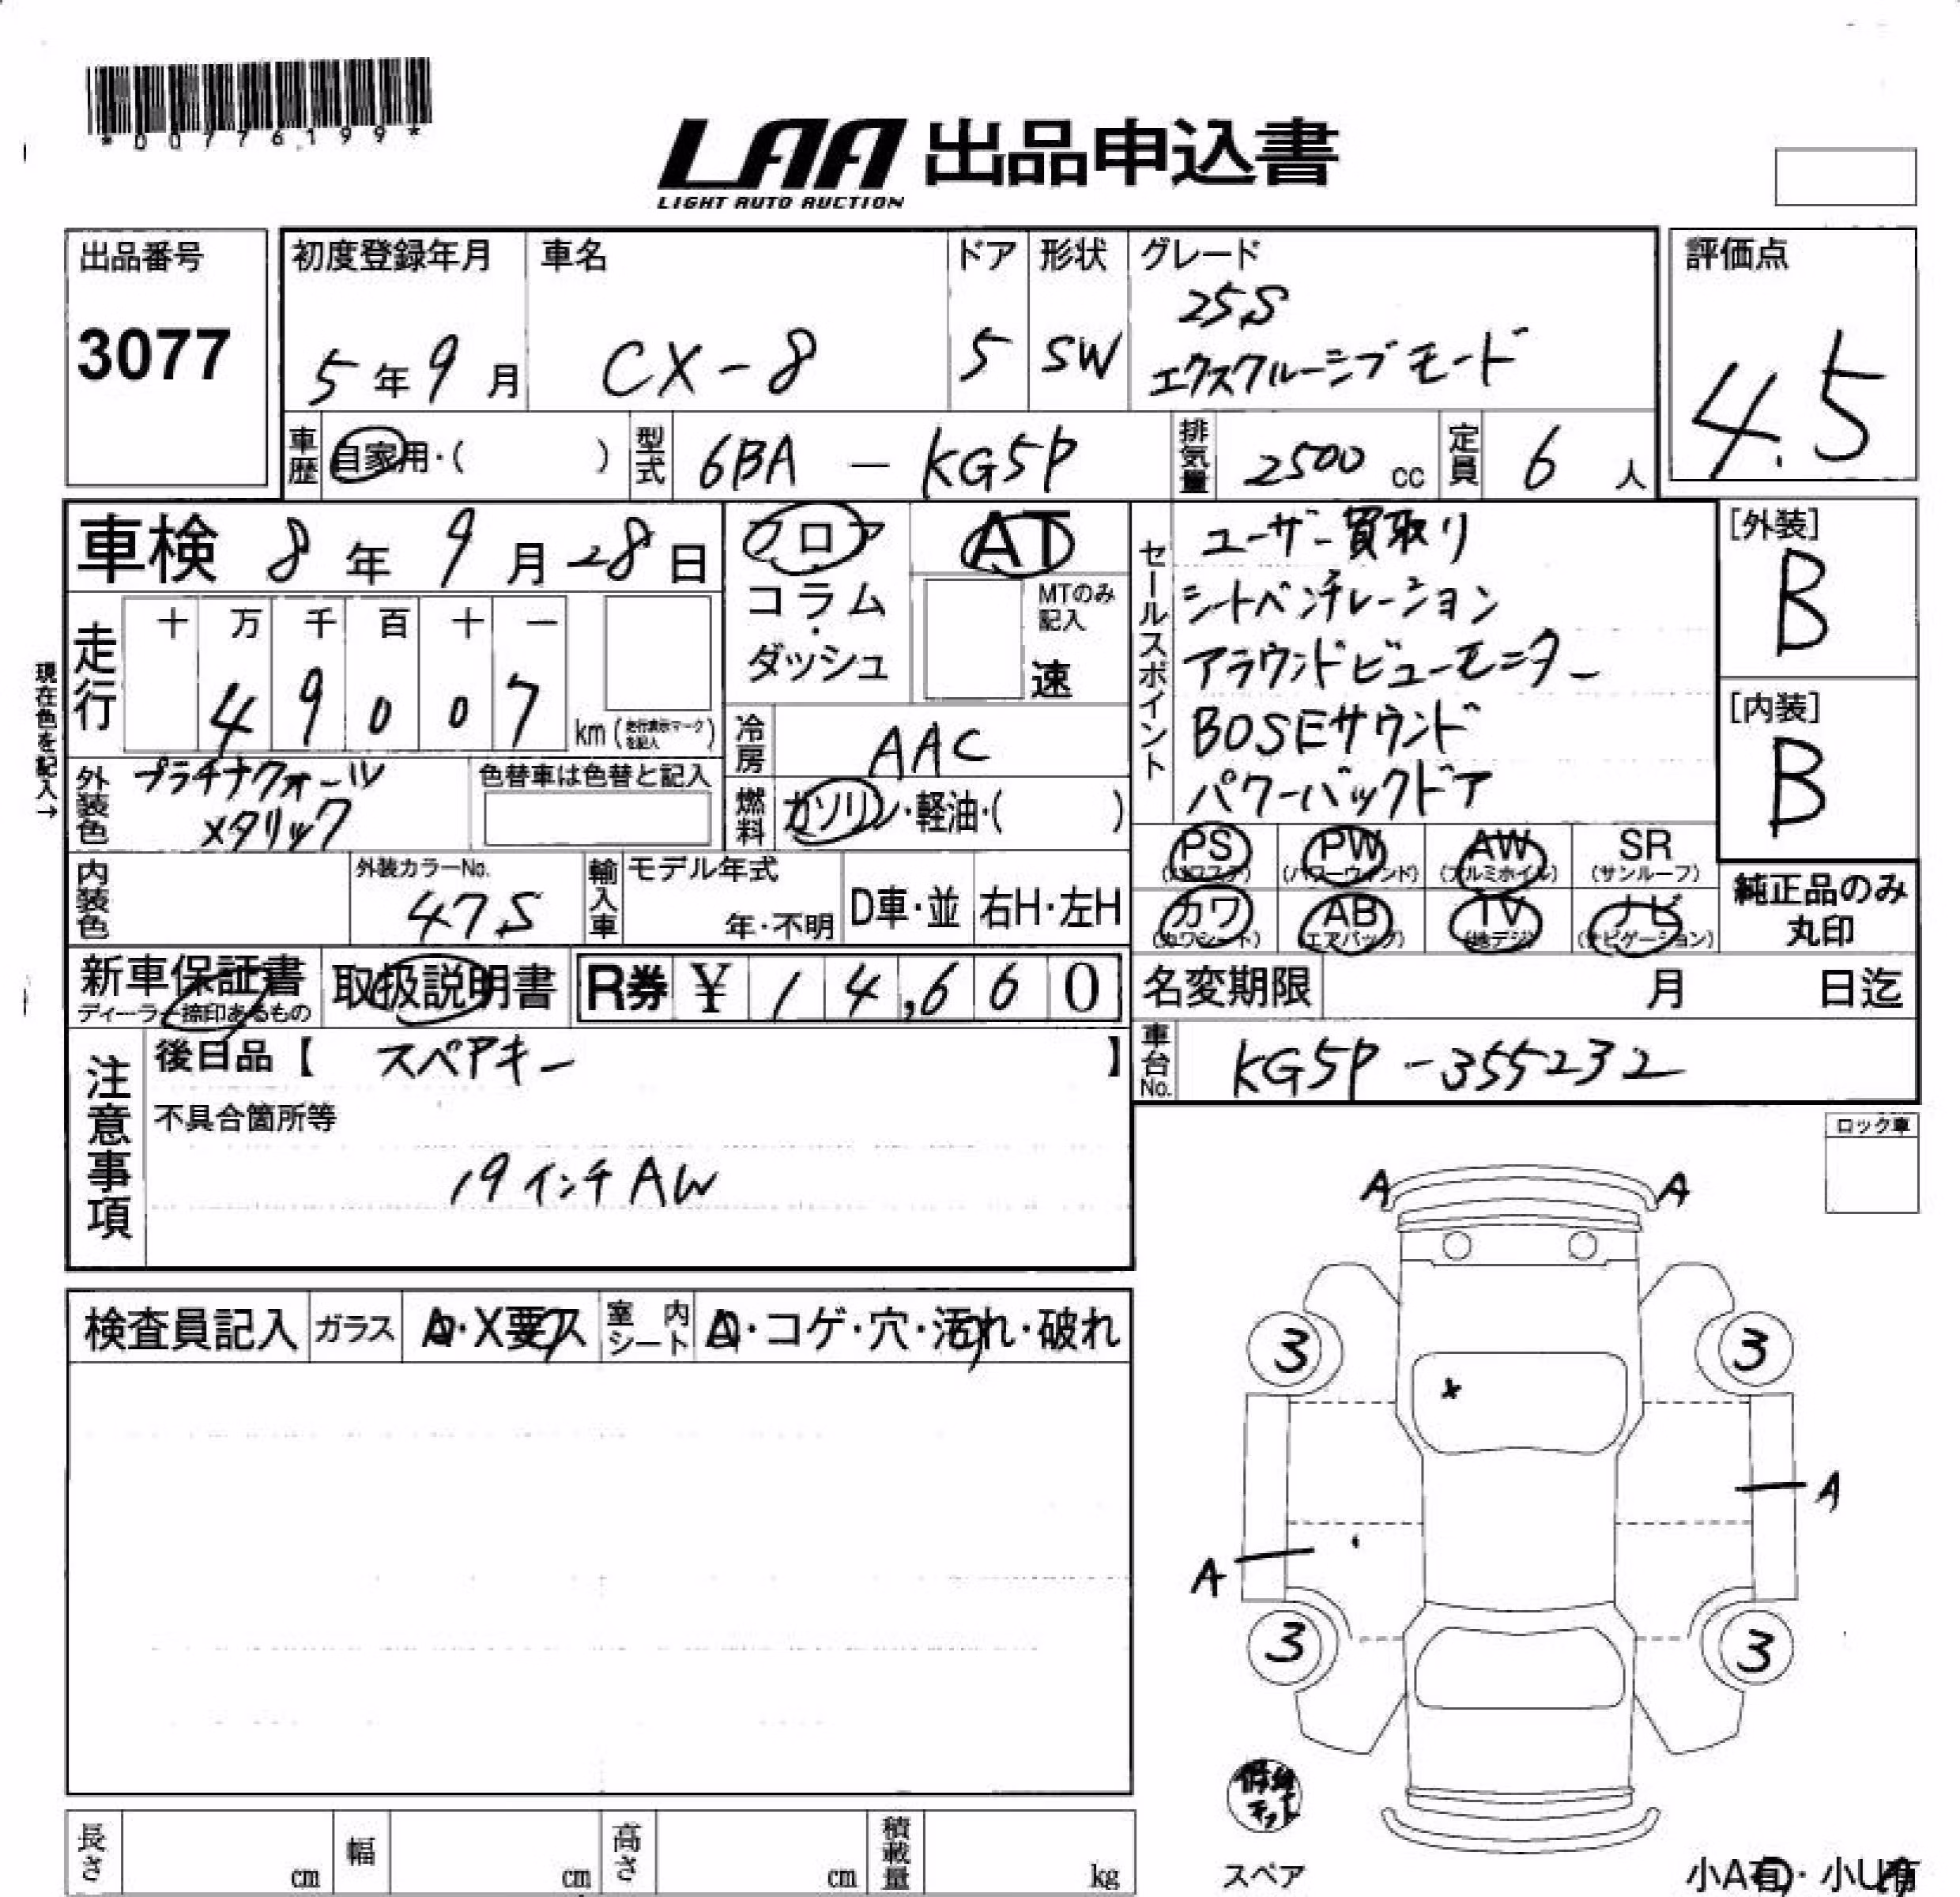 *00776199*
LAA 出品申込書
LIGHT AUTO AUCTION
出品番号
3077
初度登録年月
5年9月
車名
CX-8
ドア
5
形状
SW
グレード
25S
エクスクルーシブモード
評価点
4.5
車歴
自家用・( )
型式
6BA - KG5P
排気量
2500 cc
定員
6 人
車検 8年9月28日
フロア
コラム
・
ダッシュ
AT
MTのみ
記入
速
セールスポイント
ユーザー買取り
シートベンチレーション
アラウンドビューモニター
BOSEサウンド
パワーバックドア
[外装]
B
[内装]
B
現在色を記入→
走行
十 万 千 百 十 一
4 9 0 0 7
km (走行表示マークを記入)
冷房
AAC
外装色
プラチナクォーツ
メタリック
色替車は色替と記入
燃料
ガソリン・軽油・( )
PS
(パワステ)
PW
(パワーウィンド)
AW
(アルミホイル)
SR
(サンルーフ)
カワ
(カワシート)
AB
(エアバッグ)
TV
(地デジ)
ナビ
(ナビゲーション)
純正品のみ
丸印
内装色
外装カラーNo.
47S
輸入車
モデル年式
年・不明
D車・並
右H・左H
新車保証書
ディーラー捺印あるもの
取扱説明書
R券 ¥ 14,660
名変期限 月 日迄
車台No.
KG5P-355232
注意事項
後日品【 スペアキー 】
不具合箇所等
19インチAW
ロック車
検査員記入
ガラス
A・X要ス
室内
シート
・コゲ・穴・汚れ・破れ
A
A
3
3
A
A
3
3
スペア
長さ
cm
幅
cm
高さ
cm
積載量
kg
小A有・小U有